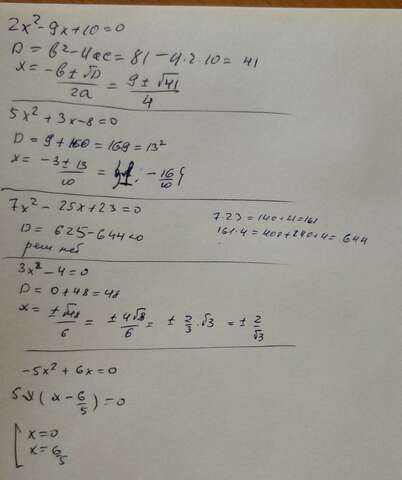 2x² - 9x + 10 = 0
D = b² - 4ac = 81 - 4·2·10 = 41
x = (-b ± √D)/2a = (9 ± √41)/4
5x² + 3x - 8 = 0
D = 9 + 160 = 169 = 13²
x = (-3 ± 13)/10 = {1; -16/10}
7x² - 25x + 23 = 0
7·23 = 140 + 21 = 161
D = 625 - 644 < 0
161·4 = 400 + 240 + 4 = 644
реш нет
3x² - 4 = 0
D = 0 + 48 = 48
x = ±√48/6 = ±4√3/6 = ± 2/3 · √3 = ± 2/√3
-5x² + 6x = 0
5x(x - 6/5) = 0
[ x = 0
x = 6/5